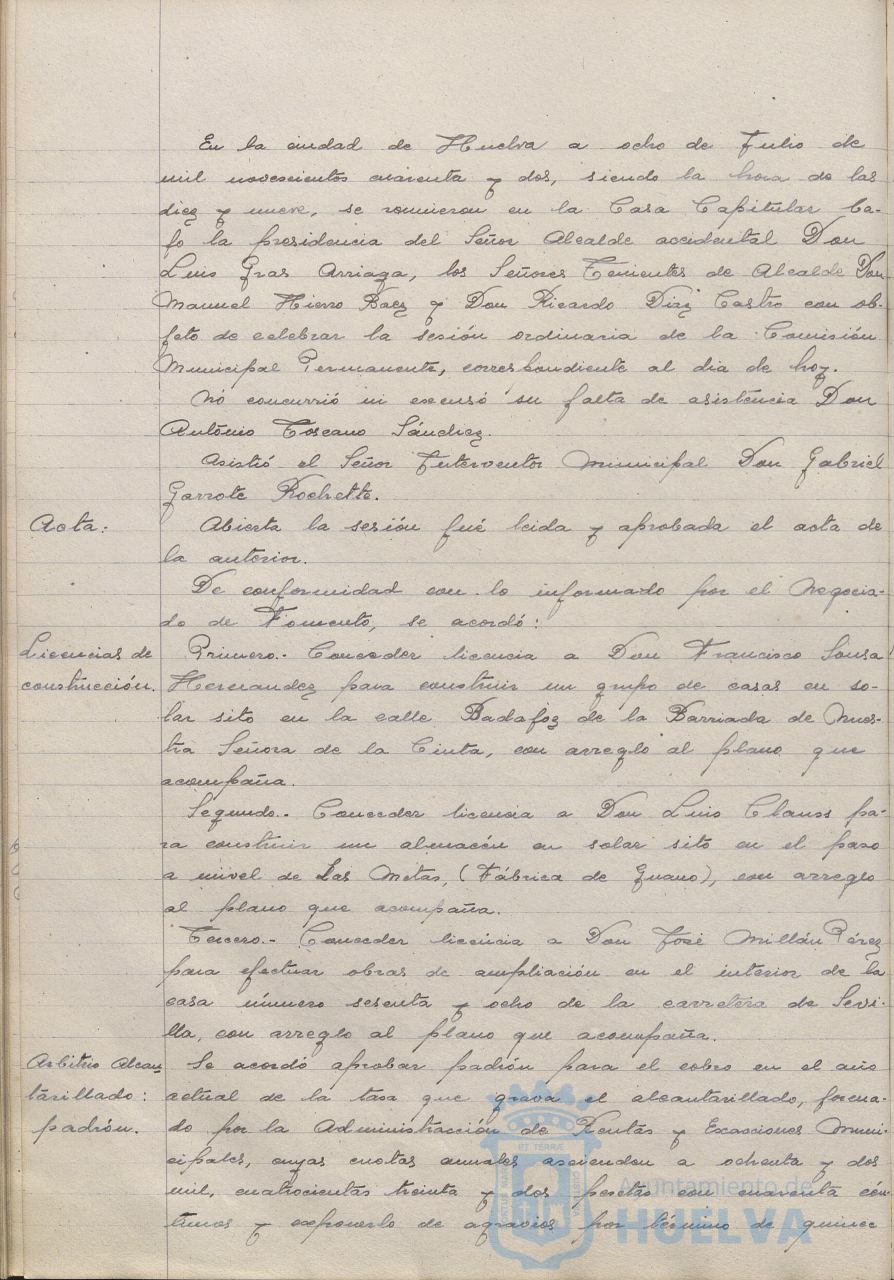 En la ciudad de Huelva a ocho de Julio de
mil novescientos cuarenta y dos, siendo la hora de las
diez y nueve, se reunieron en la Casa Capitular ba-
jo la presidencia del Señor Alcalde accidental Don
Luis Gras Arriaga, los Señores Tenientes de Alcalde Don
Manuel Hierro Baez y Don Ricardo Diaz Castro con ob-
jeto de celebrar la sesión ordinaria de la Comisión
Municipal Permanente, correspondiente al dia de hoy.
No concurrió ni excusó su falta de asistencia Don
António Toscano Sánchez.
Asistió el Señor Interventor Municipal Don Gabriel
Garrote Rochette.
Acta:
Abierta la sesión fué leida y aprobada el acta de
la anterior.
De conformidad con lo informado por el Negocia-
do de Fomento, se acordó:
Licencias de
construcción.
Primero.- Conceder licencia a Don Francisco Sousa
Hernandez para construir un grupo de casas en so-
lar sito en la calle Badajoz de la Barriada de Nues-
tra Señora de la Cinta, con arreglo al plano que
acompaña.
Segundo.- Conceder licencia a Don Luis Clauss pa-
ra construir un almacén en solar sito en el paso
a nivel de Las Metas, (Fábrica de Guano), con arreglo
al plano que acompaña.
Tercero.- Conceder licencia a Don José Millán Pérez
para efectuar obras de ampliación en el interior de la
casa número sesenta y ocho de la carretera de Sevi-
lla, con arreglo al plano que acompaña.
Arbitrio Alcan
tarillado:
padrón.
Se acordó aprobar padrón para el cobro en el año
actual de la tasa que grava el alcantarillado, forma-
do por la Administracción de Rentas y Exacciones Muni-
cipales, cuyas cuotas anuales ascienden a ochenta y dos
mil, cuatrocientas treinta y dos pesetas con cuarenta cén-
timos y exponerlo de agravios por término de quince
Ayuntamiento de
HUELVA